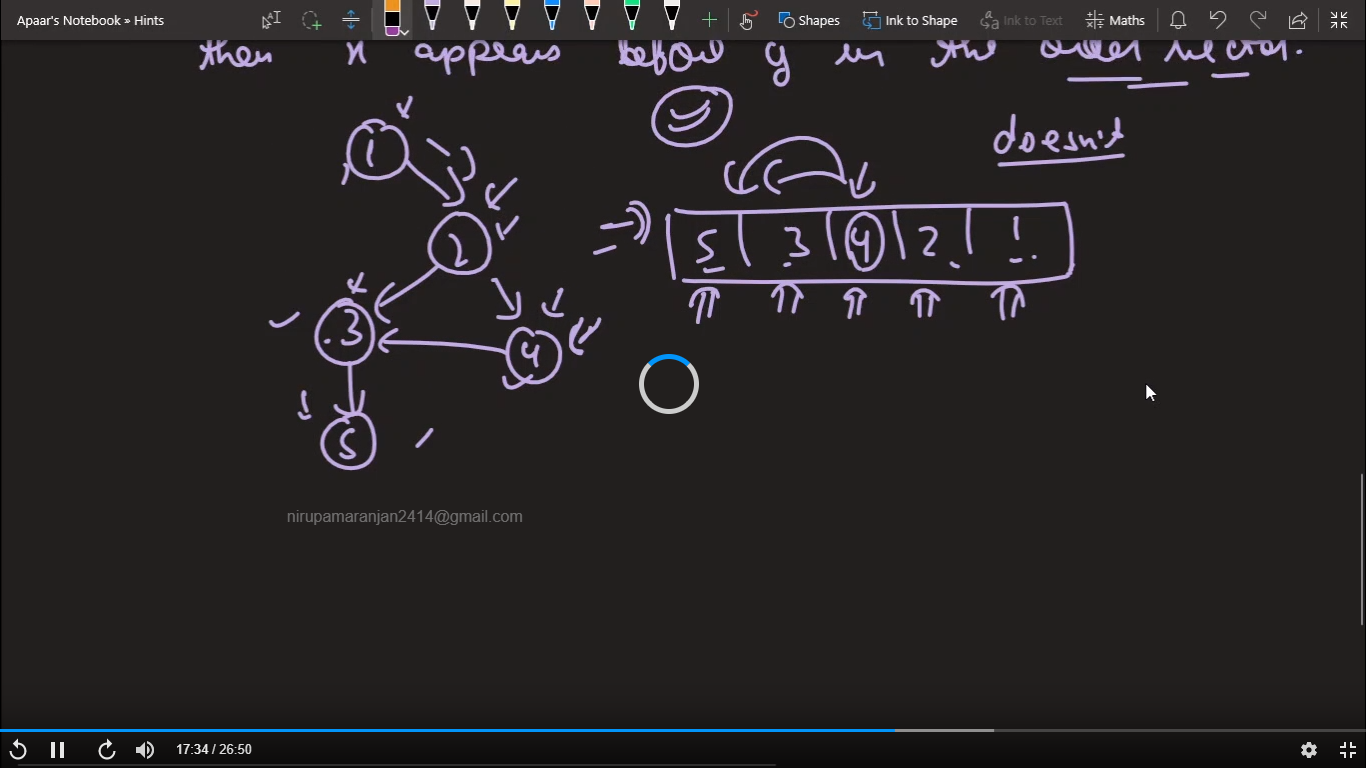 Apaar's Notebook » Hints
Shapes
Ink to Shape
Ink to Text
Maths
then x appears before y in the order vector.
doesn't
1
2
5 3 4 2 1
3
4
5
nirupamaranjan2414@gmail.com
17:34 / 26:50